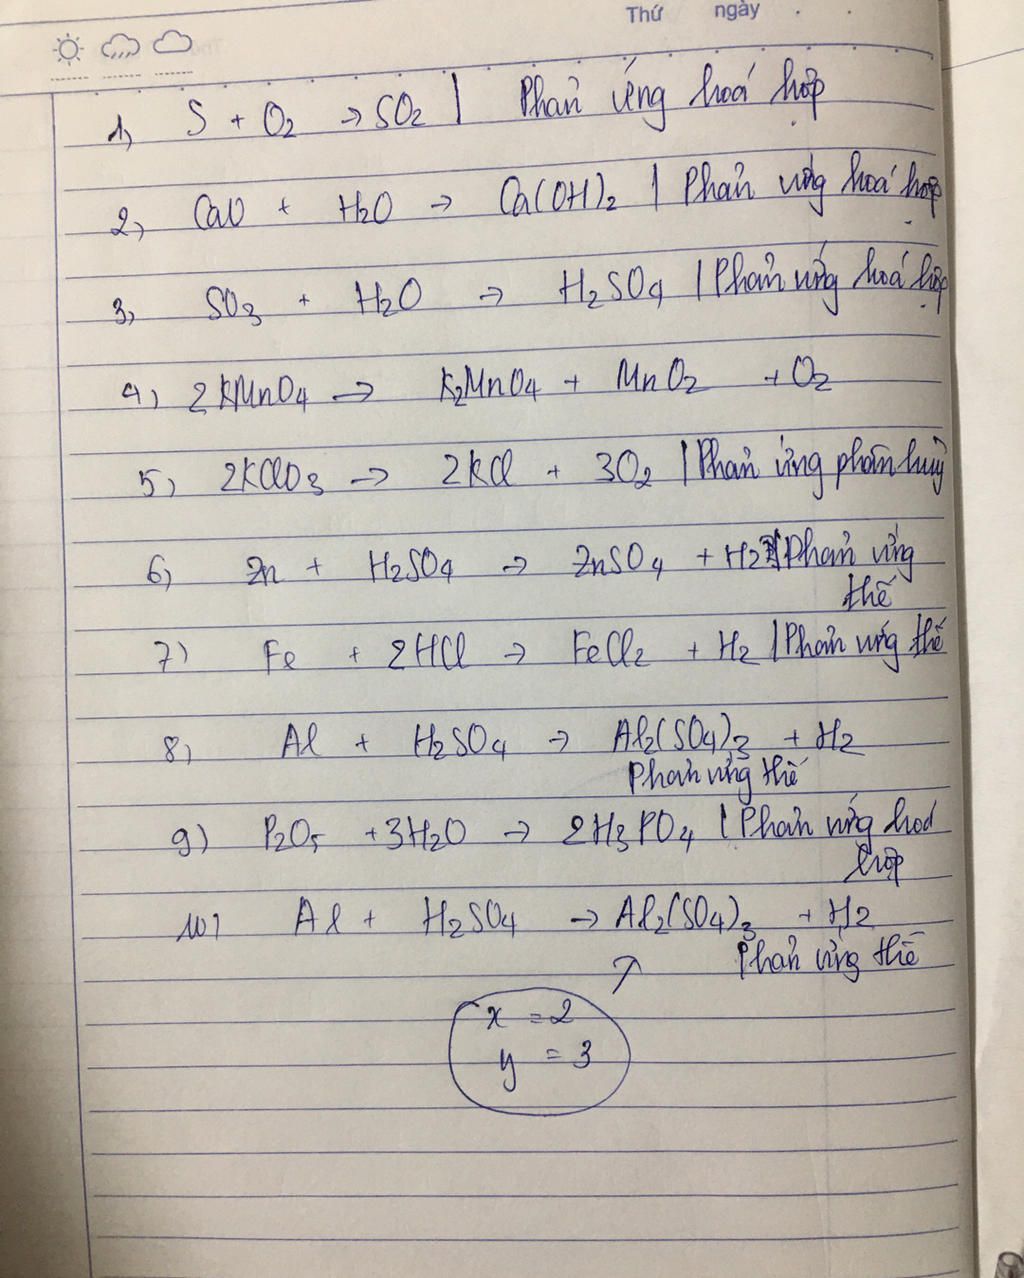 Thứ ngày
1, S + O2 → SO2 | Phản ứng hoá hợp
2, CaO + H2O → Ca(OH)2 | Phản ứng hoá hợp
3, SO3 + H2O → H2SO4 | Phản ứng hoá hợp
4, 2KMnO4 → K2MnO4 + MnO2 + O2
5, 2KClO3 → 2KCl + 3O2 | Phản ứng phân huỷ
6, Zn + H2SO4 → ZnSO4 + H2 | Phản ứng
thế
7) Fe + 2HCl → FeCl2 + H2 | Phản ứng thế
8, Al + H2SO4 → Al2(SO4)3 + H2
Phản ứng thế
9) P2O5 + 3H2O → 2H3PO4 | Phản ứng hoá
hợp
10) Al + H2SO4 → Al2(SO4)3 + H2
Phản ứng thế
x = 2
y = 3